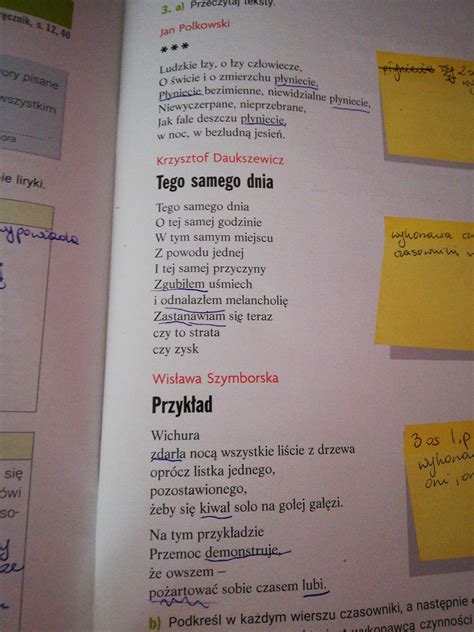 3. a) Przeczytaj teksty.
ręcznik, s. 12, 40
Jan Polkowski
***
Ludzkie łzy, o łzy człowiecze,
O świcie i o zmierzchu płyniecie,
Płyniecie bezimienne, niewidzialne płyniecie,
Niewyczerpane, nieprzebrane,
Jak fale deszczu płyniecie,
w noc, w bezludną jesień.
ory pisane
wszystkim
ora
ie liryki.
wypowiada
Krzysztof Daukszewicz
Tego samego dnia
Tego samego dnia
O tej samej godzinie
W tym samym miejscu
Z powodu jednej
I tej samej przyczyny
Zgubiłem uśmiech
i odnalazłem melancholię
Zastanawiam się teraz
czy to strata
czy zysk
wykonawca
czasowniki
Wisława Szymborska
Przykład
Wichura
zdarła nocą wszystkie liście z drzewa
oprócz listka jednego,
pozostawionego,
żeby się kiwał solo na gołej gałęzi.
Na tym przykładzie
Przemoc demonstruje,
że owszem –
pożartować sobie czasem lubi.
3 os l.p
oni, on
się
ówi
so-
b) Podkreśl w każdym wierszu czasowniki, a następnie
wykonawcą czynności